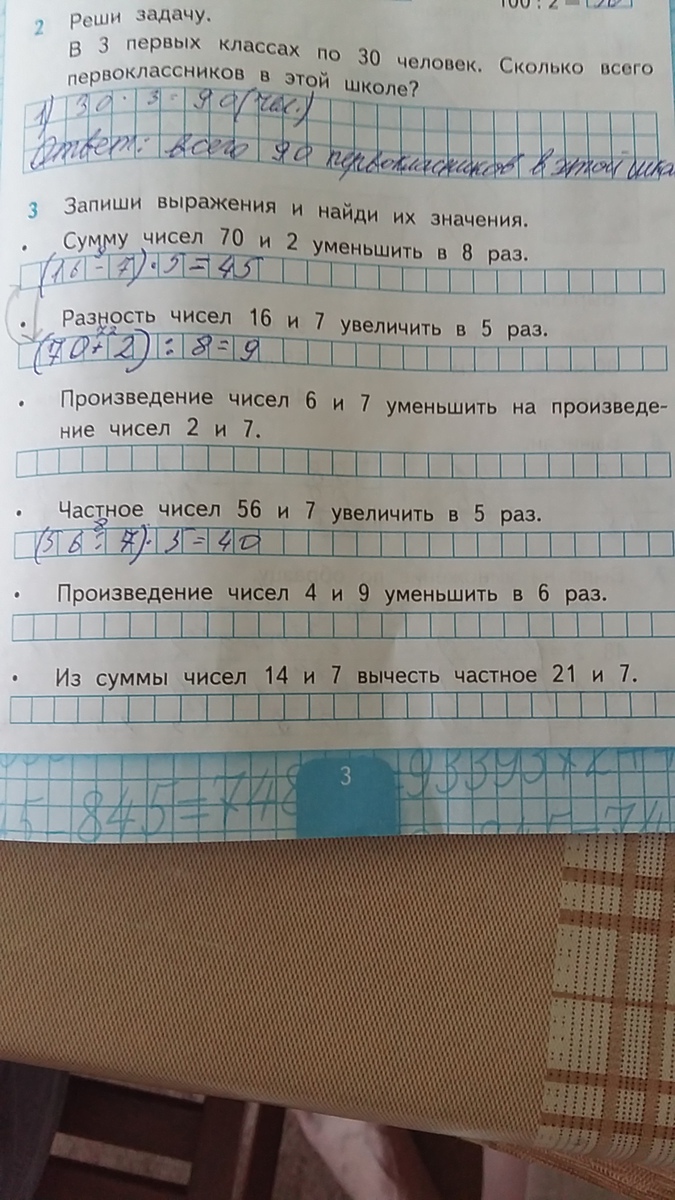 100 : 2 =
2 Реши задачу.
В 3 первых классах по 30 человек. Сколько всего
первоклассников в этой школе?
1) 30 · 3 = 90 (чел.)
Ответ: всего 90 первокласников в этой шко
3 Запиши выражения и найди их значения.
• Сумму чисел 70 и 2 уменьшить в 8 раз.
9
(16 - 7) · 5 = 45
• Разность чисел 16 и 7 увеличить в 5 раз.
72
(70 + 2) : 8 = 9
• Произведение чисел 6 и 7 уменьшить на произведе-
ние чисел 2 и 7.
• Частное чисел 56 и 7 увеличить в 5 раз.
8
(56 : 7) · 5 = 40
• Произведение чисел 4 и 9 уменьшить в 6 раз.
• Из суммы чисел 14 и 7 вычесть частное 21 и 7.
3
845=748